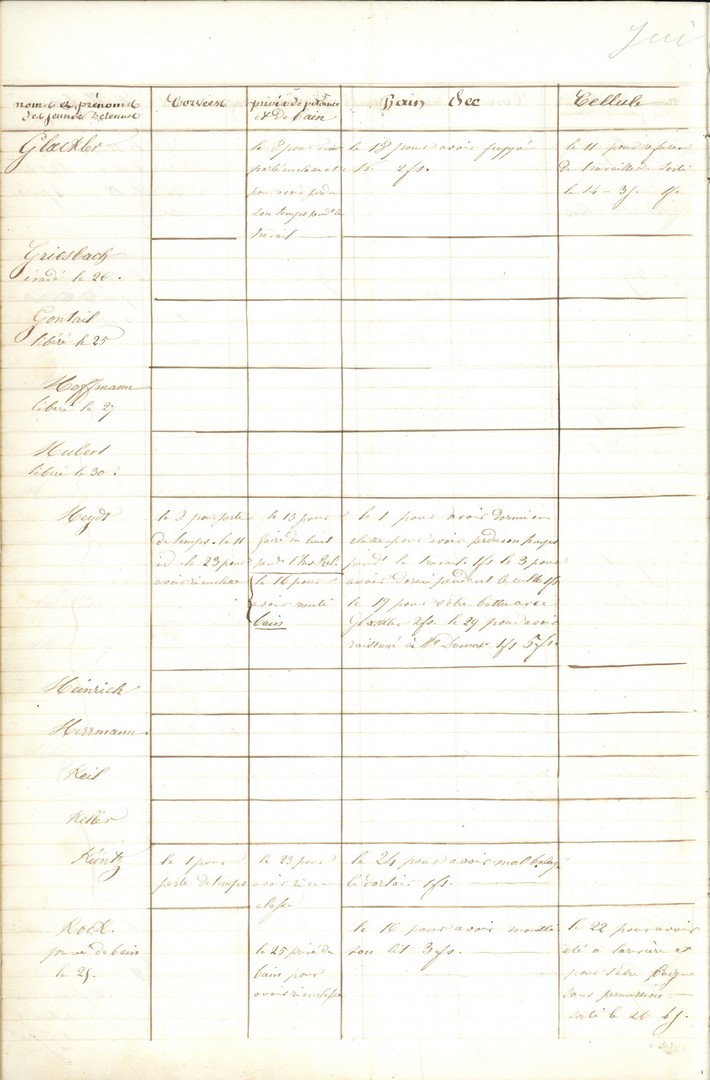 noms et prénoms
des jeunes détenus
Corvées
privés de pitance
et de bain
Pain Sec
Cellule
Glaekler
le 8 pour
pour avoir perdu
son temps pendt le
travail
le 18 pour avoir frappé
2fs.
le 11 pour refuser
de travailler. sorti
le 14 - 3j.
Griesbach
évadé le 26.
Gontail
libéré le 25
Hoffmann
libéré le 27
Hubert
libéré le 30.
Heydt
le 3 pour perte
de temps. le 11
id. le 23 pour
avoir ri en classe
le 13 pour
faire du bruit
pendt
le 16 pour
avoir menti
bain
le 1 pour avoir dormi en
classe pour avoir perdu son temps
pendt le travail. 1fs le 3 pour
avoir dormi pendant le culte 1fs
le 17 pour s'être battu avec
Glaekler 2fs. le 29 pour avoir
raisonné à Mr 1fs 5fs.
Heinrich
Herrmann.
Keil
Keller
Küntz
le 1 pour
perte de temps
le 23 pour
avoir ri en
classe
le 24 pour avoir mal balayé
le dortoir 1fs.
Kock.
privé de bain
le 25.
le 25 privé de
bain pour
avoir ri en classe
le 16 pour avoir mouillé
son lit 3fs.
le 22 pour avoir
été à la rivière et
pour s'être baigné
sans permission
sorti le 26 4j.